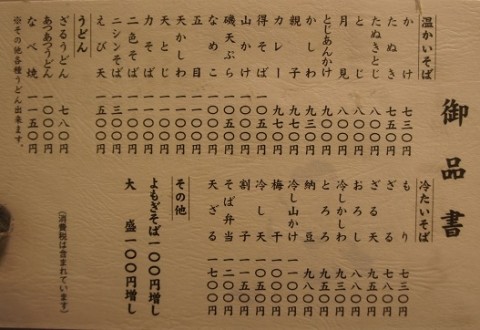 御品書
温かいそば
かけ 七三〇円
たぬき 七五〇円
たぬきとじ 八五〇円
とじ 八〇〇円
月見 八〇〇円
とじあんかけ
かしわ
親子 九七〇円
カレー 九七〇円
得そば 一〇五〇円
山かけ
磯天ぷら 一〇五〇円
なめこ
五目
天かしわ
天とじ
力そば
二色そば
ニシンそば 一三〇〇円
えび天 一五〇〇円
うどん
ざるうどん 七八〇円
あつあつうどん 一〇〇〇円
なべ焼 一一五〇円
※その他各種うどん出来ます。
冷たいそば
もり 七三〇円
ざる 七八〇円
ざる天 九五〇円
おろし 八五〇円
冷しかしわ 九三〇円
とろろ 九五〇円
納豆 九八〇円
冷し山かけ
梅干
冷し天 一〇五〇円
割子 一一五〇円
そば弁当 一二〇〇円
天ざる 一七〇〇円
その他
よもぎそば 一〇〇円増し
大盛 一〇〇円増し
(消費税は含まれています)